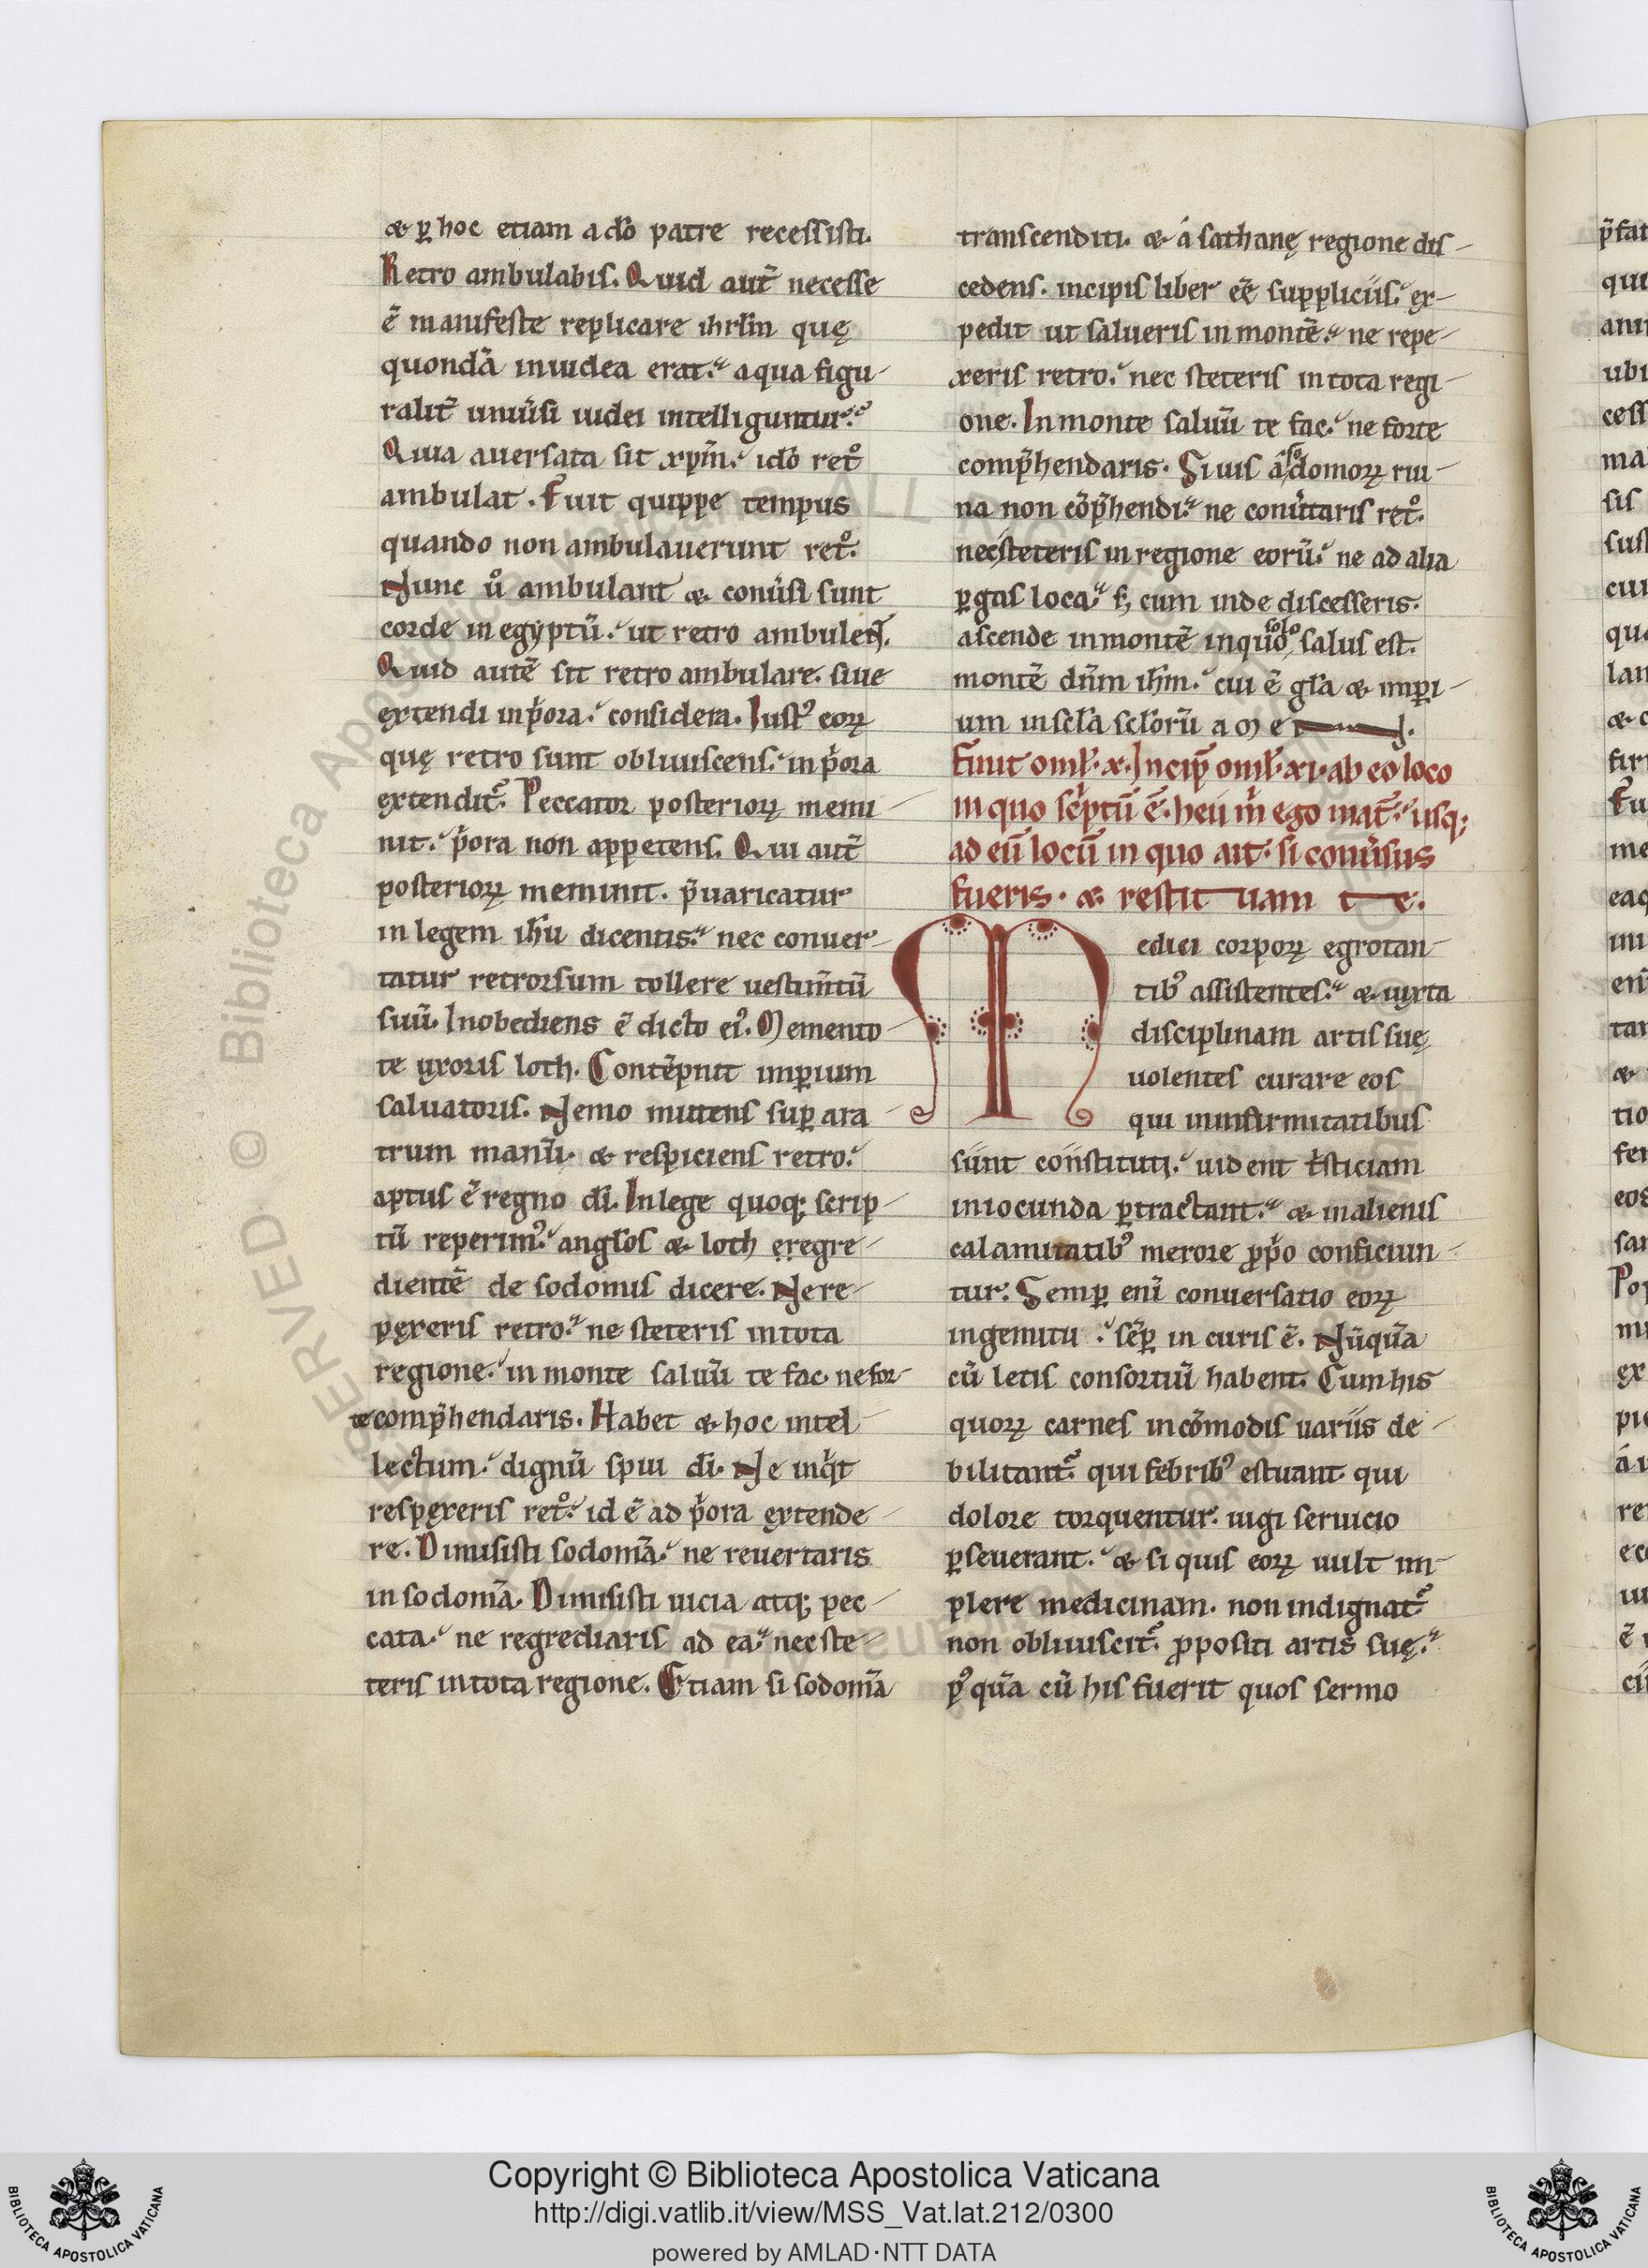 & ꝑ hoc etiam a dō patre recessisti.
Retro ambulabis. Quid aut̄ necesse
ē manifeste replicare ihrlm̄ quę
quondā in iudea erat. a qua figu-
ralit̄ uniūsi iudei intelliguntur.
Quia auersata sit xpm̄. idō retͦ
ambulat. Fuit quippe tempus
quando non ambulauerunt retͦ.
Nunc uͦ ambulant & conūsi sunt
corde in egyptū. ut retro ambulent.
Quid autē sit retro ambulare. siue
extendi in pͥora. considera. Iustꝰ eoꝝ
quę retro sunt obliuiscens. in pͥora
extendit᷑. Peccator posterioꝝ memi-
nit. pͥora non appetens. Qui aut̄
posterioꝝ meminit. p̄uaricatur
in legem ihū dicentis. nec conuer-
tatur retrorsum tollere uestim̄tū
suū. Inobediens ē dicto eiꝰ. Memento
te uxoris loth. Contēpnit imꝑium
saluatoris. Nemo mittens suꝑ ara-
trum manū. & respiciens retro.
aptus ē regno dī. In lege quoqꝫ scrip-
tū reperimꝰ. angłos & loth egregre-
dientē de sodomis dicere. Ne re-
pęxeris retro. ne steteris in tota
regione. in monte saluū te fac ne for-
te comp̄hendaris. Habet & hoc intel-
lectum. dignū spiu dī. Ne inqͥt
respęxeris retͦ. id ē ad pͥora extende-
re. Dimisisti sodomā. ne reuertaris
in sodomā. Dimisisti uicia atqꝫ pec-
cata. ne regrediaris ad ea. nec ste-
teris in tota regione. Etiam si sodomā
transcenditi. & á sathanę regione dis-
cedens. incipis liber eē suppliciis. ex-
pedit ut salueris in montē. ne repe-
xeris retro. nec steteris in tota regi-
one. In monte saluū te fac. ne forte
comp̄hendaris. Si uis á sodomoꝝ rui-
na non cōp̄hendi. ne conūtaris retͦ.
nec steteris in regione eorū. ne ad alia
ꝑgas loca. s; cum inde discesseris.
ascende in montē in quo solo salus est.
montē dn̄m ihm̄. cui ē gła & imꝑi-
um in scła scłorū amen.
Finit omł. x. Incip̄ omł. xi. ab eo loco
in quo scͥptū ē. heú m̄ ego mat᷑. usqꝫ
ad eū locū in quo ait. si conūsus
fueris. & restituam te.
Medici corpoꝝ egrotan-
tibꝰ assistentes. & iuxta
disciplinam artis suę
uolentes curare eos
qui in infirmitatibus
sunt constituti. uident tͥsticiam
iniocunda ꝑtractant. & in alienis
calamitatibꝰ merore ꝓpͥo conficiun-
tur. Semꝑ eni conuersatio eoꝝ
in gemitu. sēꝑ in curis ē. Nūquā
cū letis consortiū habent. Cum his
quoꝝ carnes incōmodis uariis de-
bilitant᷑. qui febribꝰ estuant. qui
dolore torquentur. iugi seruicio
ꝑseuerant. & si quis eoꝝ uult im-
plere medicinam. non indignat᷑
non obliuiscit᷑. ꝓpositi artis suę.
pꝰquā cū his fuerit quos sermo
Copyright © Biblioteca Apostolica Vaticana
http://digi.vatlib.it/view/MSS_Vat.lat.212/0300
powered by AMLAD·NTT DATA